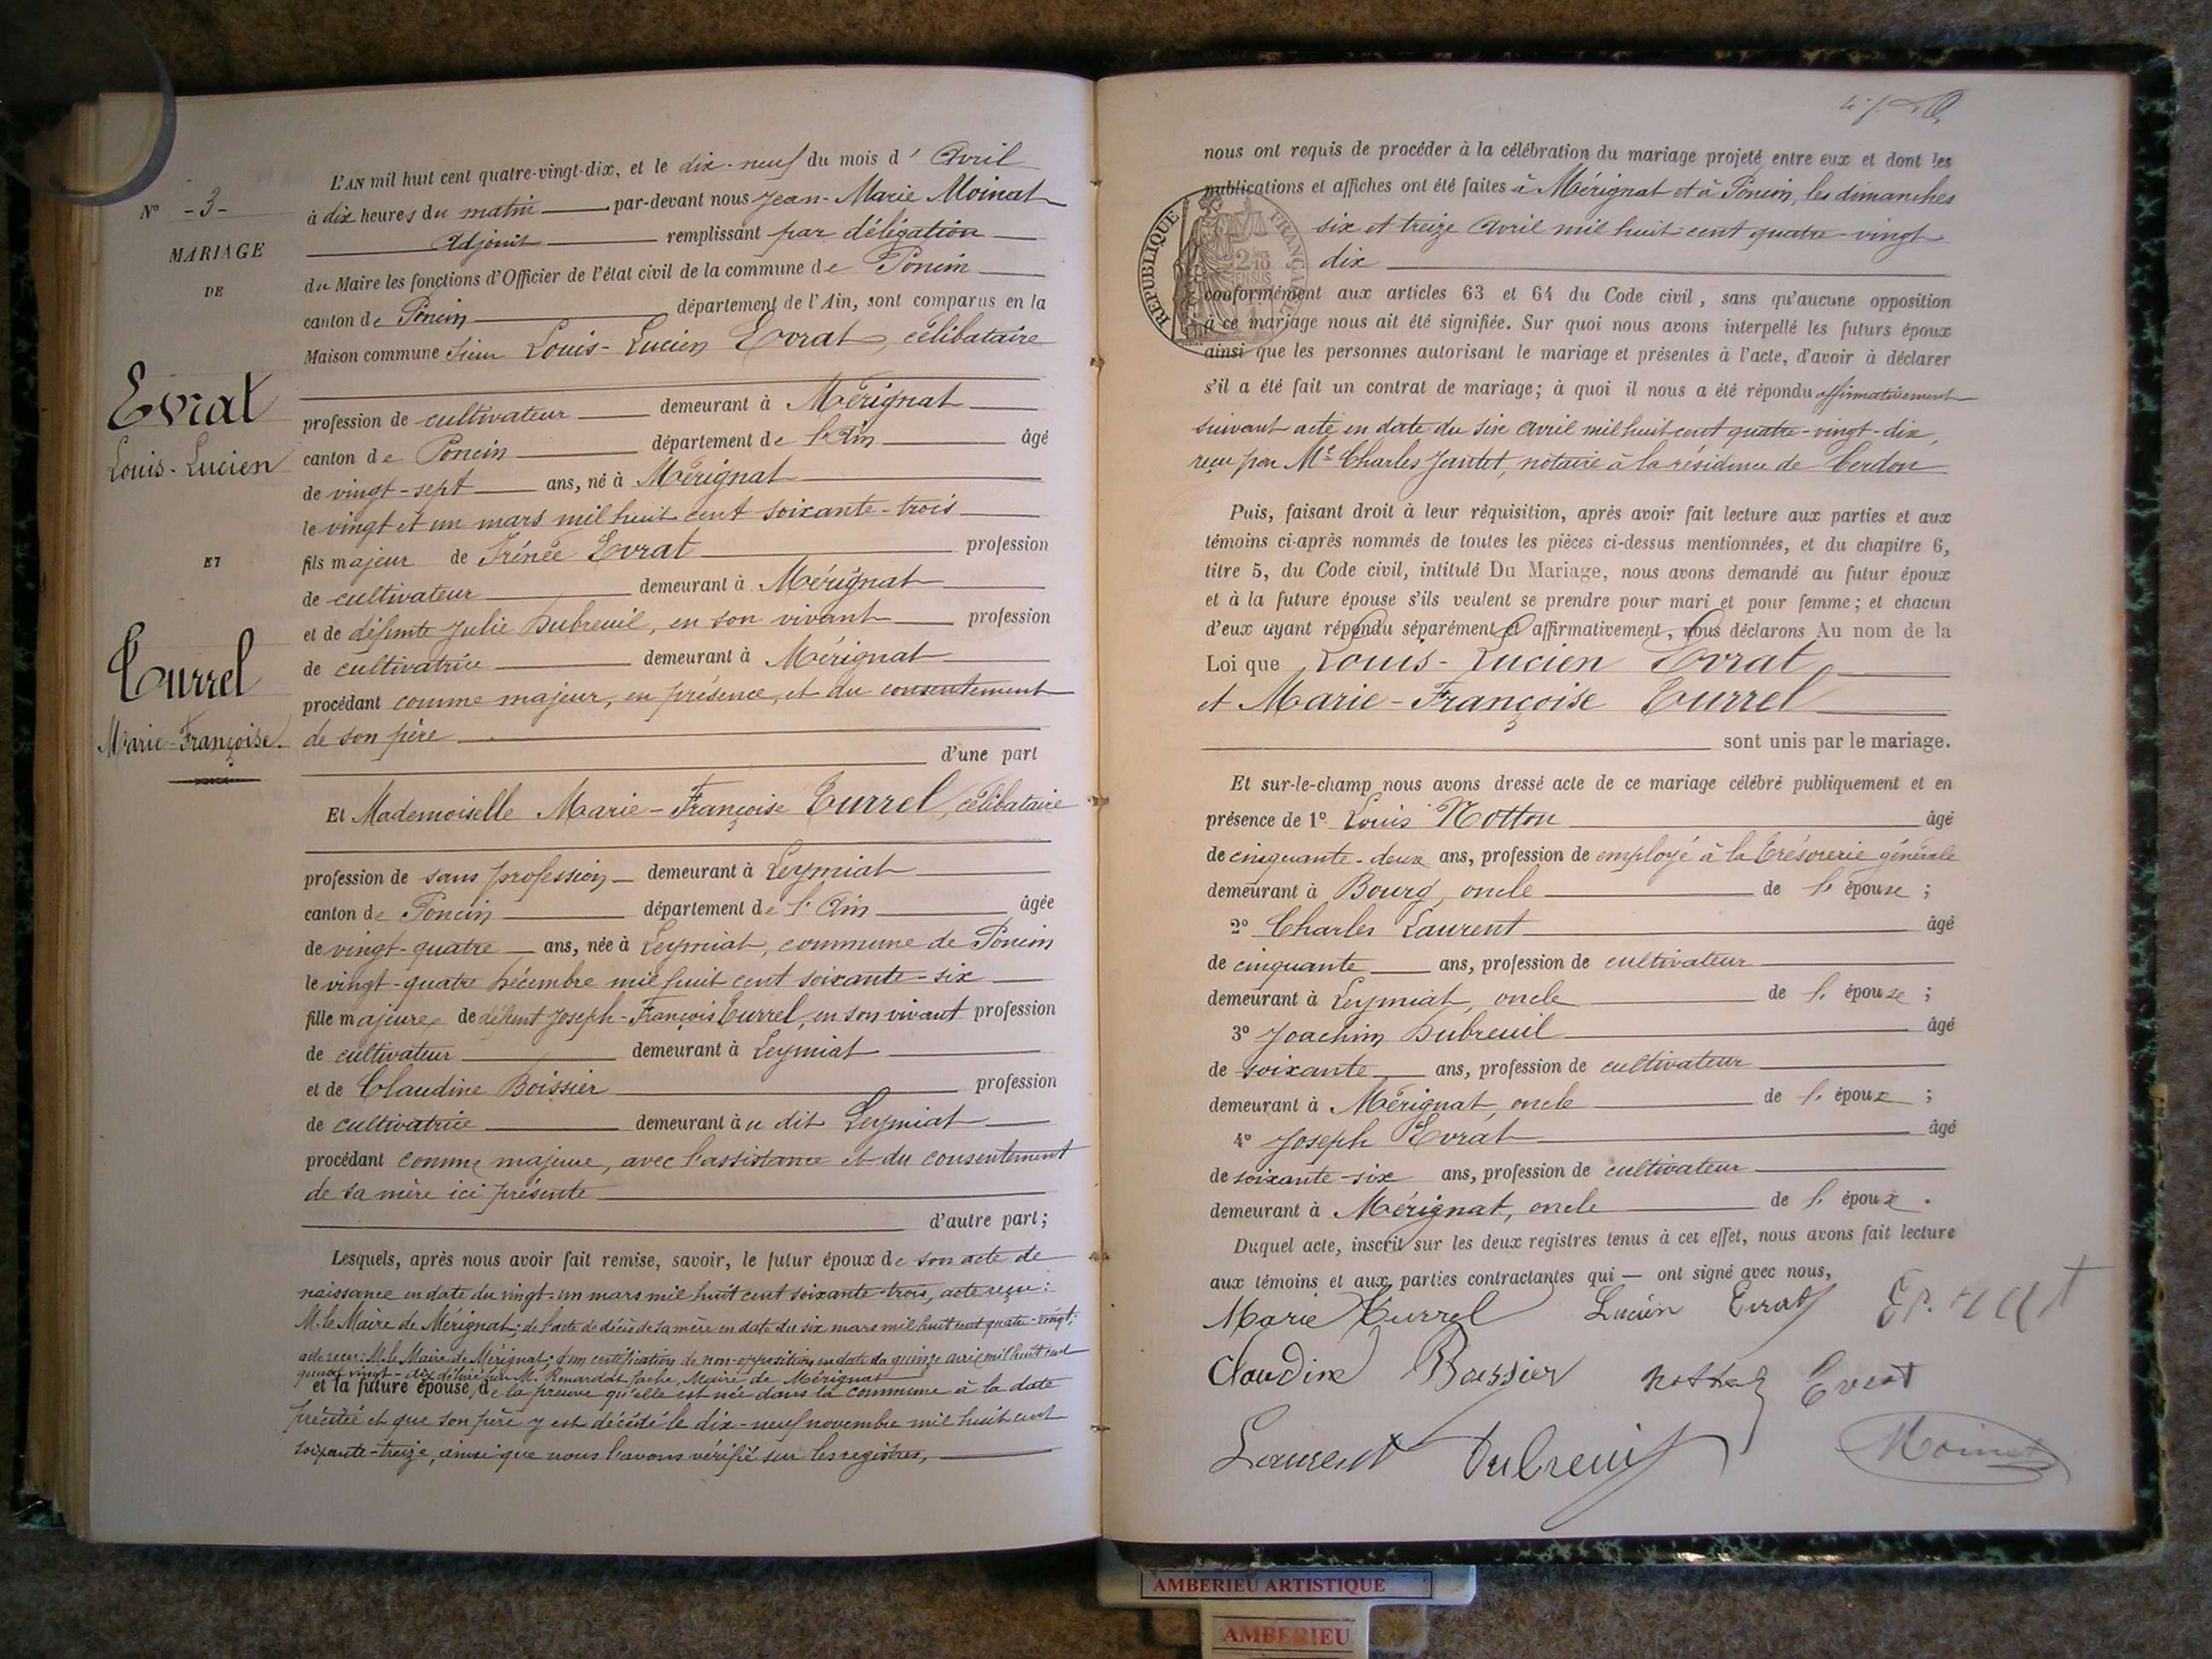 Nº -3-
MARIAGE
DE
Evrat
Louis-Lucien
ET
Turrel
Marie-Françoise.
L'AN mil huit cent quatre-vingt-dix, et le dix-neuf du mois d' Avril
à dix heures du matin par-devant nous Jean-Marie Moinat
Adjoint remplissant par délégation
du Maire les fonctions d'Officier de l'état civil de la commune de Poncin
canton de Poncin département de l'Ain, sont comparus en la
Maison commune sieur Louis-Lucien Evrat, célibataire
profession de cultivateur demeurant à Mérignat
canton de Poncin département de l'Ain âgé
de vingt-sept ans, né à Mérignat
le vingt et un mars mil huit cent soixante-trois
fils majeur de Irénée Evrat profession
de cultivateur demeurant à Mérignat
et de défunte Julie Dubreuil, en son vivant profession
de cultivatrice demeurant à Mérignat
procédant comme majeur, en présence, et du consentement
de son père
d'une part
Et Mademoiselle Marie-Françoise Turrel, célibataire
profession de sans profession demeurant à Leymiat
canton de Poncin département de l'Ain âgée
de vingt-quatre ans, née à Leymiat, commune de Poncin
le vingt-quatre Décembre mil huit cent soixante-six
fille majeure de défunt Joseph-François Turrel, en son vivant profession
de cultivateur demeurant à Leymiat
et de Claudine Boissier profession
de cultivatrice demeurant au dit Leymiat
procédant comme majeure, avec l'assistance et du consentement
de sa mère ici présente
d'autre part;
Lesquels, après nous avoir fait remise, savoir, le futur époux de son acte de
naissance en date du vingt-un mars mil huit cent soixante-trois, acte reçu:
M. le Maire de Mérignat; de l'acte de décès de sa mère en date du six mars mil huit cent quatre-vingt;
acte reçu: M. le Maire de Mérignat; d'un certification de non-opposition en date du quinze avril mil huit cent
quatre vingt-dix délivré par M. Renardat Jache, Maire de Mérignat
et la future épouse, de la preuve qu'elle est née dans la commune à la date
précitée et que son père y est décédé le dix-neuf novembre mil huit cent
soixante-treize, ainsi que nous l'avons vérifié sur les registres,
nous ont requis de procéder à la célébration du mariage projeté entre eux et dont les
publications et affiches ont été faites à Mérignat et à Poncin, les dimanches
six et treize Avril mil huit cent quatre-vingt
dix
RÉPUBLIQUE FRANÇAISE
conformément aux articles 63 et 64 du Code civil, sans qu'aucune opposition
à ce mariage nous ait été signifiée. Sur quoi nous avons interpellé les futurs époux
ainsi que les personnes autorisant le mariage et présentes à l'acte, d'avoir à déclarer
s'il a été fait un contrat de mariage; à quoi il nous a été répondu affirmativement
suivant acte en date du six Avril mil huit cent quatre-vingt-dix,
reçu par Me Charles Jantet, notaire à la résidence de Cerdon
Puis, faisant droit à leur réquisition, après avoir fait lecture aux parties et aux
témoins ci-après nommés de toutes les pièces ci-dessus mentionnées, et du chapitre 6,
titre 5, du Code civil, intitulé Du Mariage, nous avons demandé au futur époux
et à la future épouse s'ils veulent se prendre pour mari et pour femme; et chacun
d'eux ayant répondu séparément et affirmativement, nous déclarons Au nom de la
Loi que Louis-Lucien Evrat
et Marie-Françoise Turrel
sont unis par le mariage.
Et sur-le-champ nous avons dressé acte de ce mariage célébré publiquement et en
présence de 1º Louis Notton âgé
de cinquante-deux ans, profession de employé à la Trésorerie générale
demeurant à Bourg, oncle de l'épouse;
2º Charles Laurent âgé
de cinquante ans, profession de cultivateur
demeurant à Leymiat, oncle de l'épouse;
3º Joachim Dubreuil âgé
de soixante ans, profession de cultivateur
demeurant à Mérignat, oncle de l'époux;
4º Joseph Evrat âgé
de soixante-six ans, profession de cultivateur
demeurant à Mérignat, oncle de l'époux.
Duquel acte, inscrit sur les deux registres tenus à cet effet, nous avons fait lecture
aux témoins et aux parties contractantes qui — ont signé avec nous,
Marie Turrel Lucien Evrat
Claudine Boissier Notton Evrat
Laurent Dubreuil Moinat
AMBERIEU ARTISTIQUE
AMBERIEU